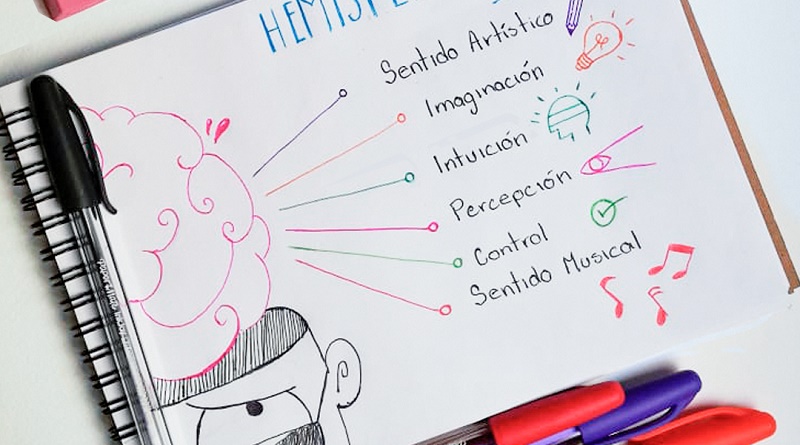 Sentido Artístico
Imaginación
Intuición
Percepción
Control
Sentido Musical